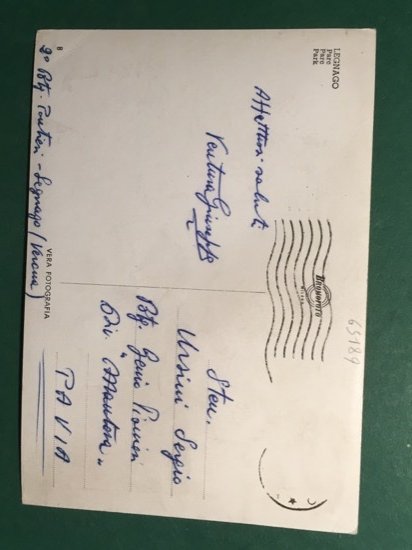 LEGNAGO
Parc
Parc
Park
Affettuosi saluti
Ventura Giuseppe
BROMOFOTO
MILANO
65189
Sten.
Ursini Sergio
Btg. Genio Pionieri
Div. "Mantova"
PAVIA
VERA FOTOGRAFIA
B
2° Btg. Pontieri - Legnago (Verona)